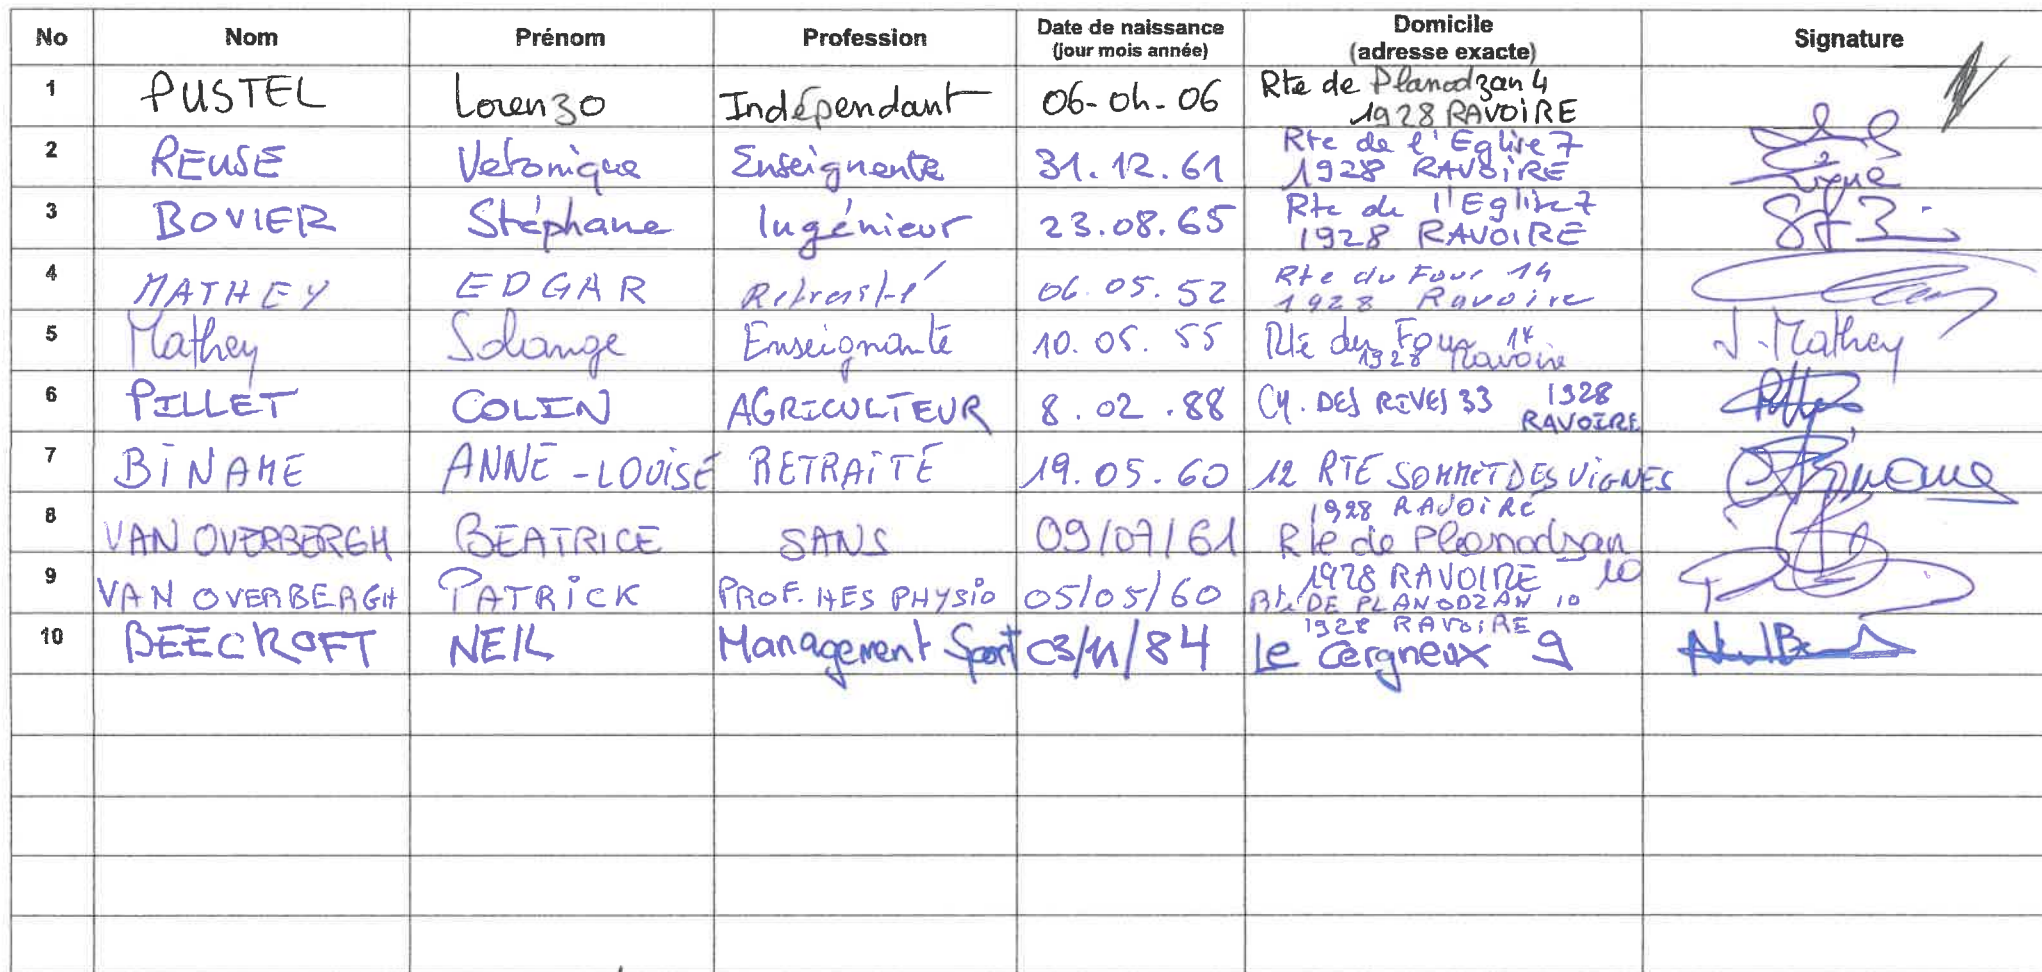 No Nom Prénom Profession Date de naissance (jour mois année) Domicile (adresse exacte) Signature
1 PUSTEL Lorenzo Indépendant 06-04-06 Rte de Planodzan 4
1928 RAVOIRE
2 REUSE Véronique Enseignante 31.12.61 Rte de l'Eglise 7
1928 RAVOIRE
3 BOVIER Stéphane Ingénieur 23.08.65 Rte de l'Eglise 7
1928 RAVOIRE
4 MATHEY EDGAR Retraité 06.05.52 Rte du Four 14
1928 Ravoire
5 Mathey Solange Enseignante 10.05.55 Rte du Four 14
1928 Ravoire
S. Mathey
6 PILLET COLIN AGRICULTEUR 8.02.88 CH. DES RIVES 33 1928
RAVOIRE
7 BINAME ANNE-LOUISE RETRAITÉ 19.05.60 12 RTE SOMMET DES VIGNES
1928 RAVOIRE
8 VAN OVERBERGH BEATRICE SANS 09/07/61 Rte de Planodzan 10
1928 RAVOIRE
9 VAN OVERBERGH PATRICK PROF. HES PHYSIO 05/05/60 Rte DE PLANODZAN 10
1928 RAVOIRE
10 BEECROFT NEIL Management Sport 03/11/84 Le Cergneux 9